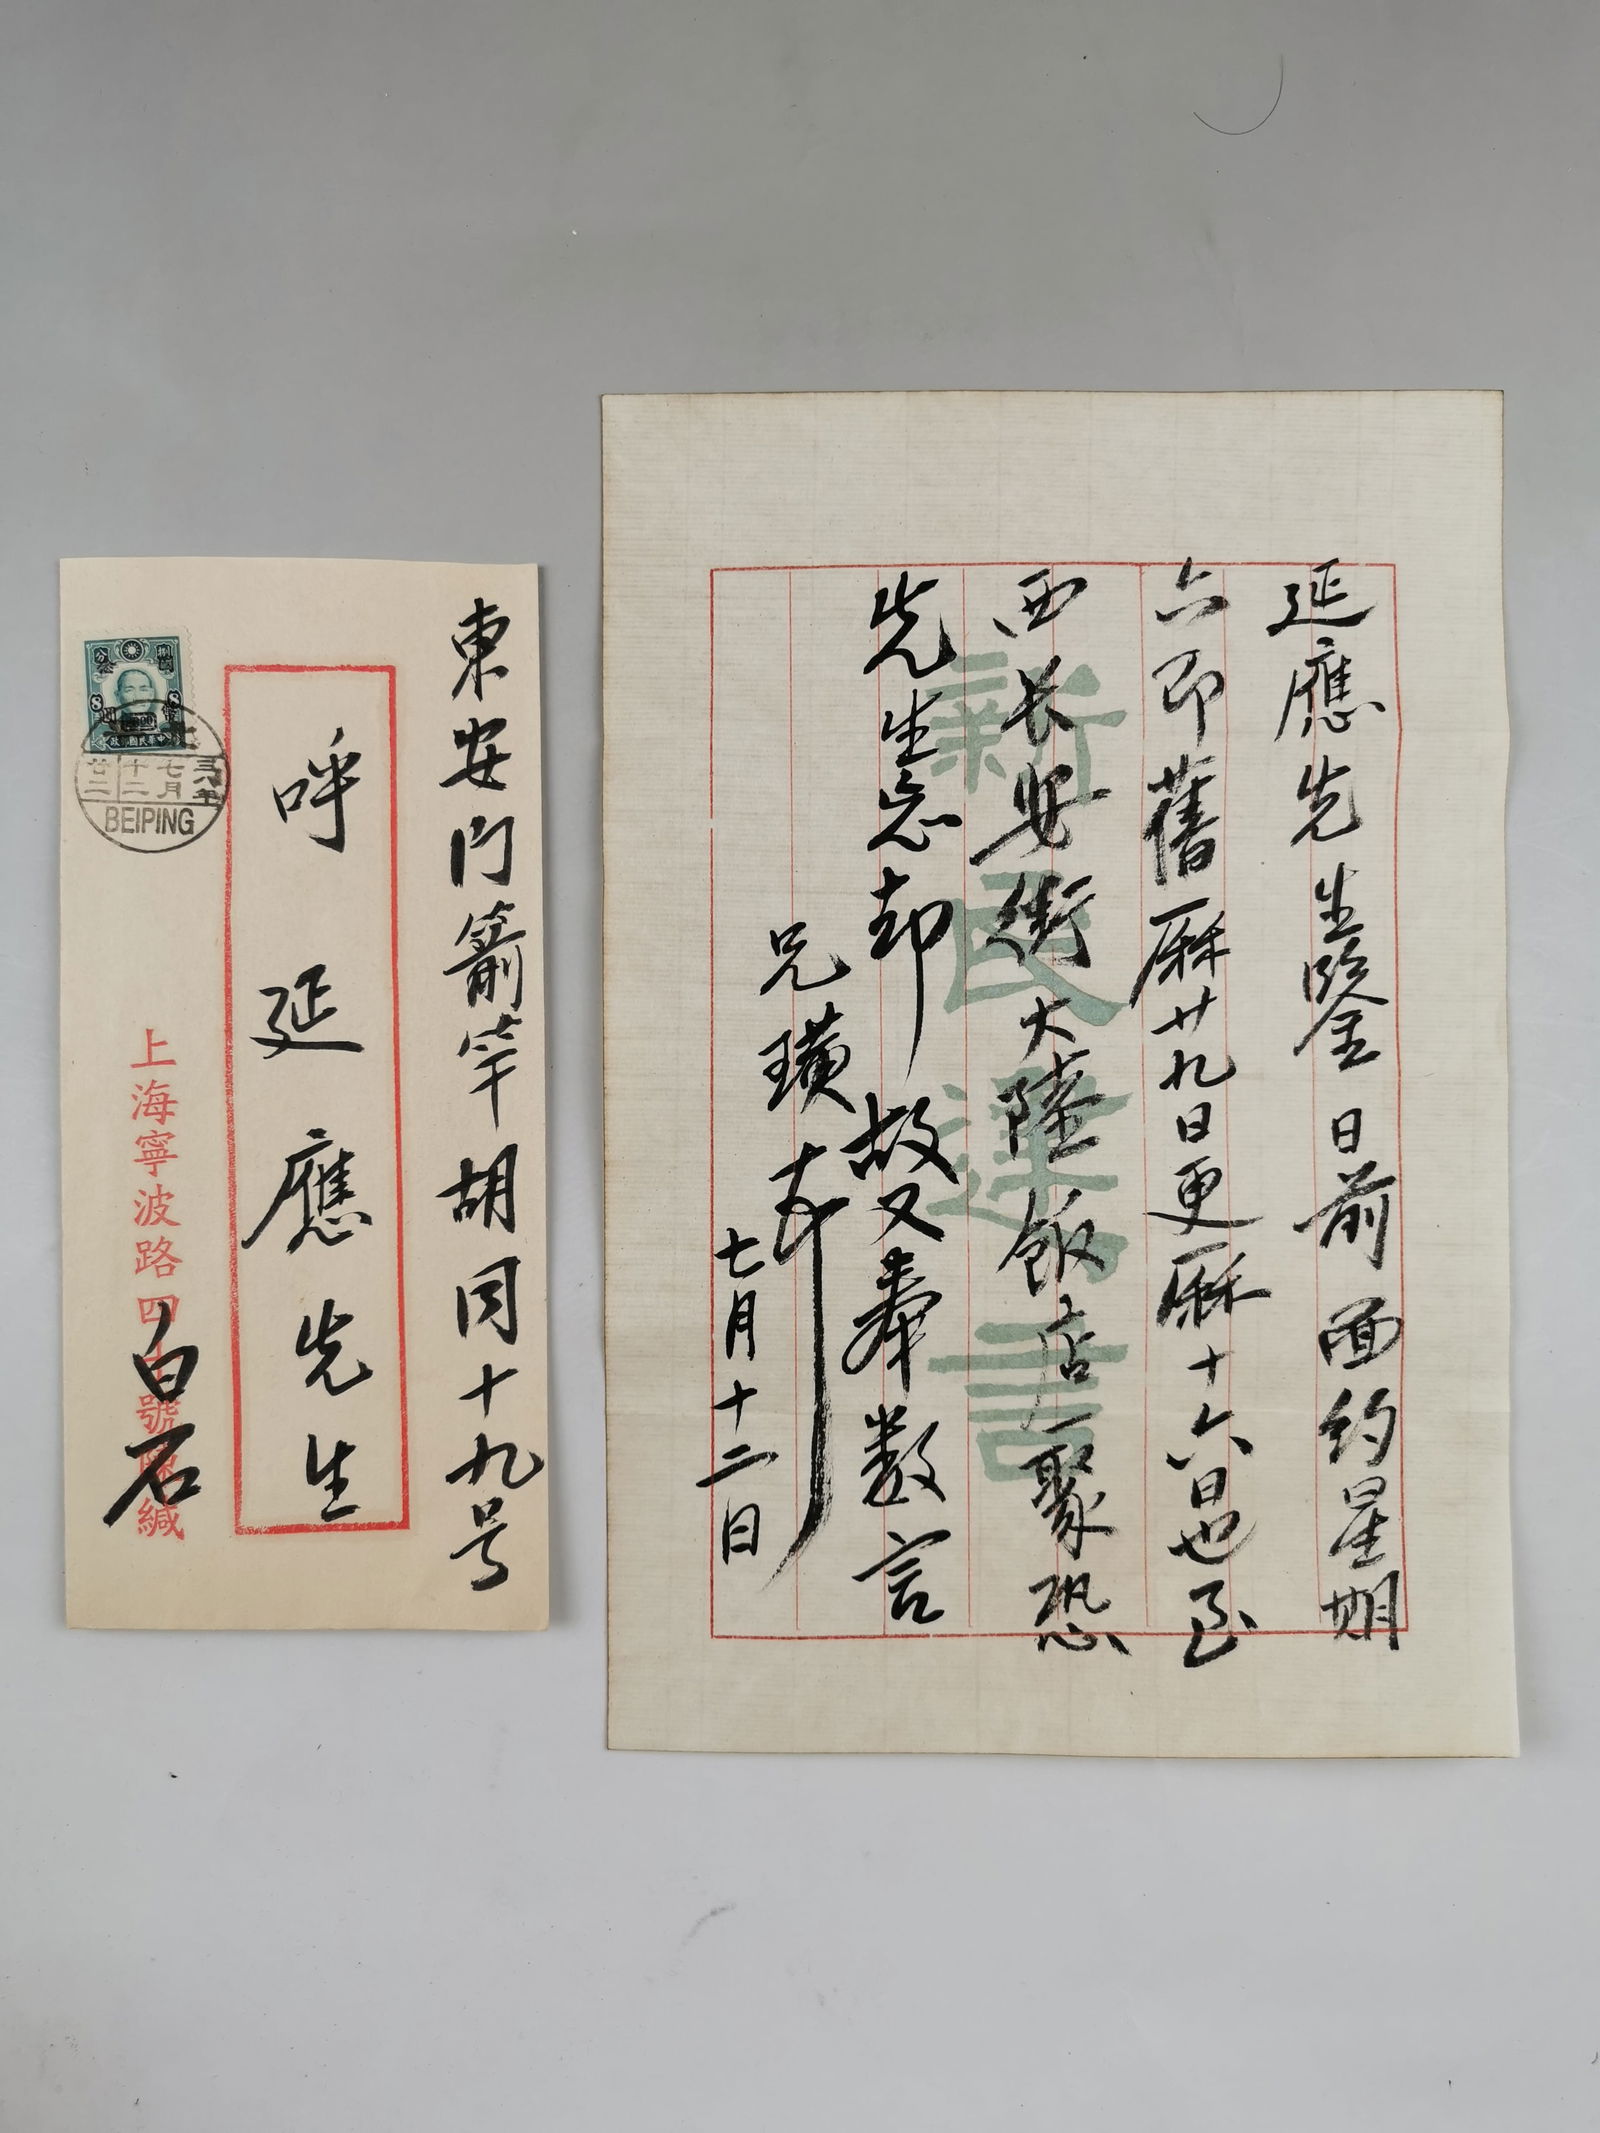 延應先生鑒日前面約星期
六即舊厤廿九日更厤十六日也至
西长安街大陸飯店一聚恐
先生忘却故又奉数言
兄璜
七月十二日
新民達言
東安门箭竿胡同十九号
呼延應先生
白石
上海寧波路四
號
緘
七月
十二
廿二
BEIPING